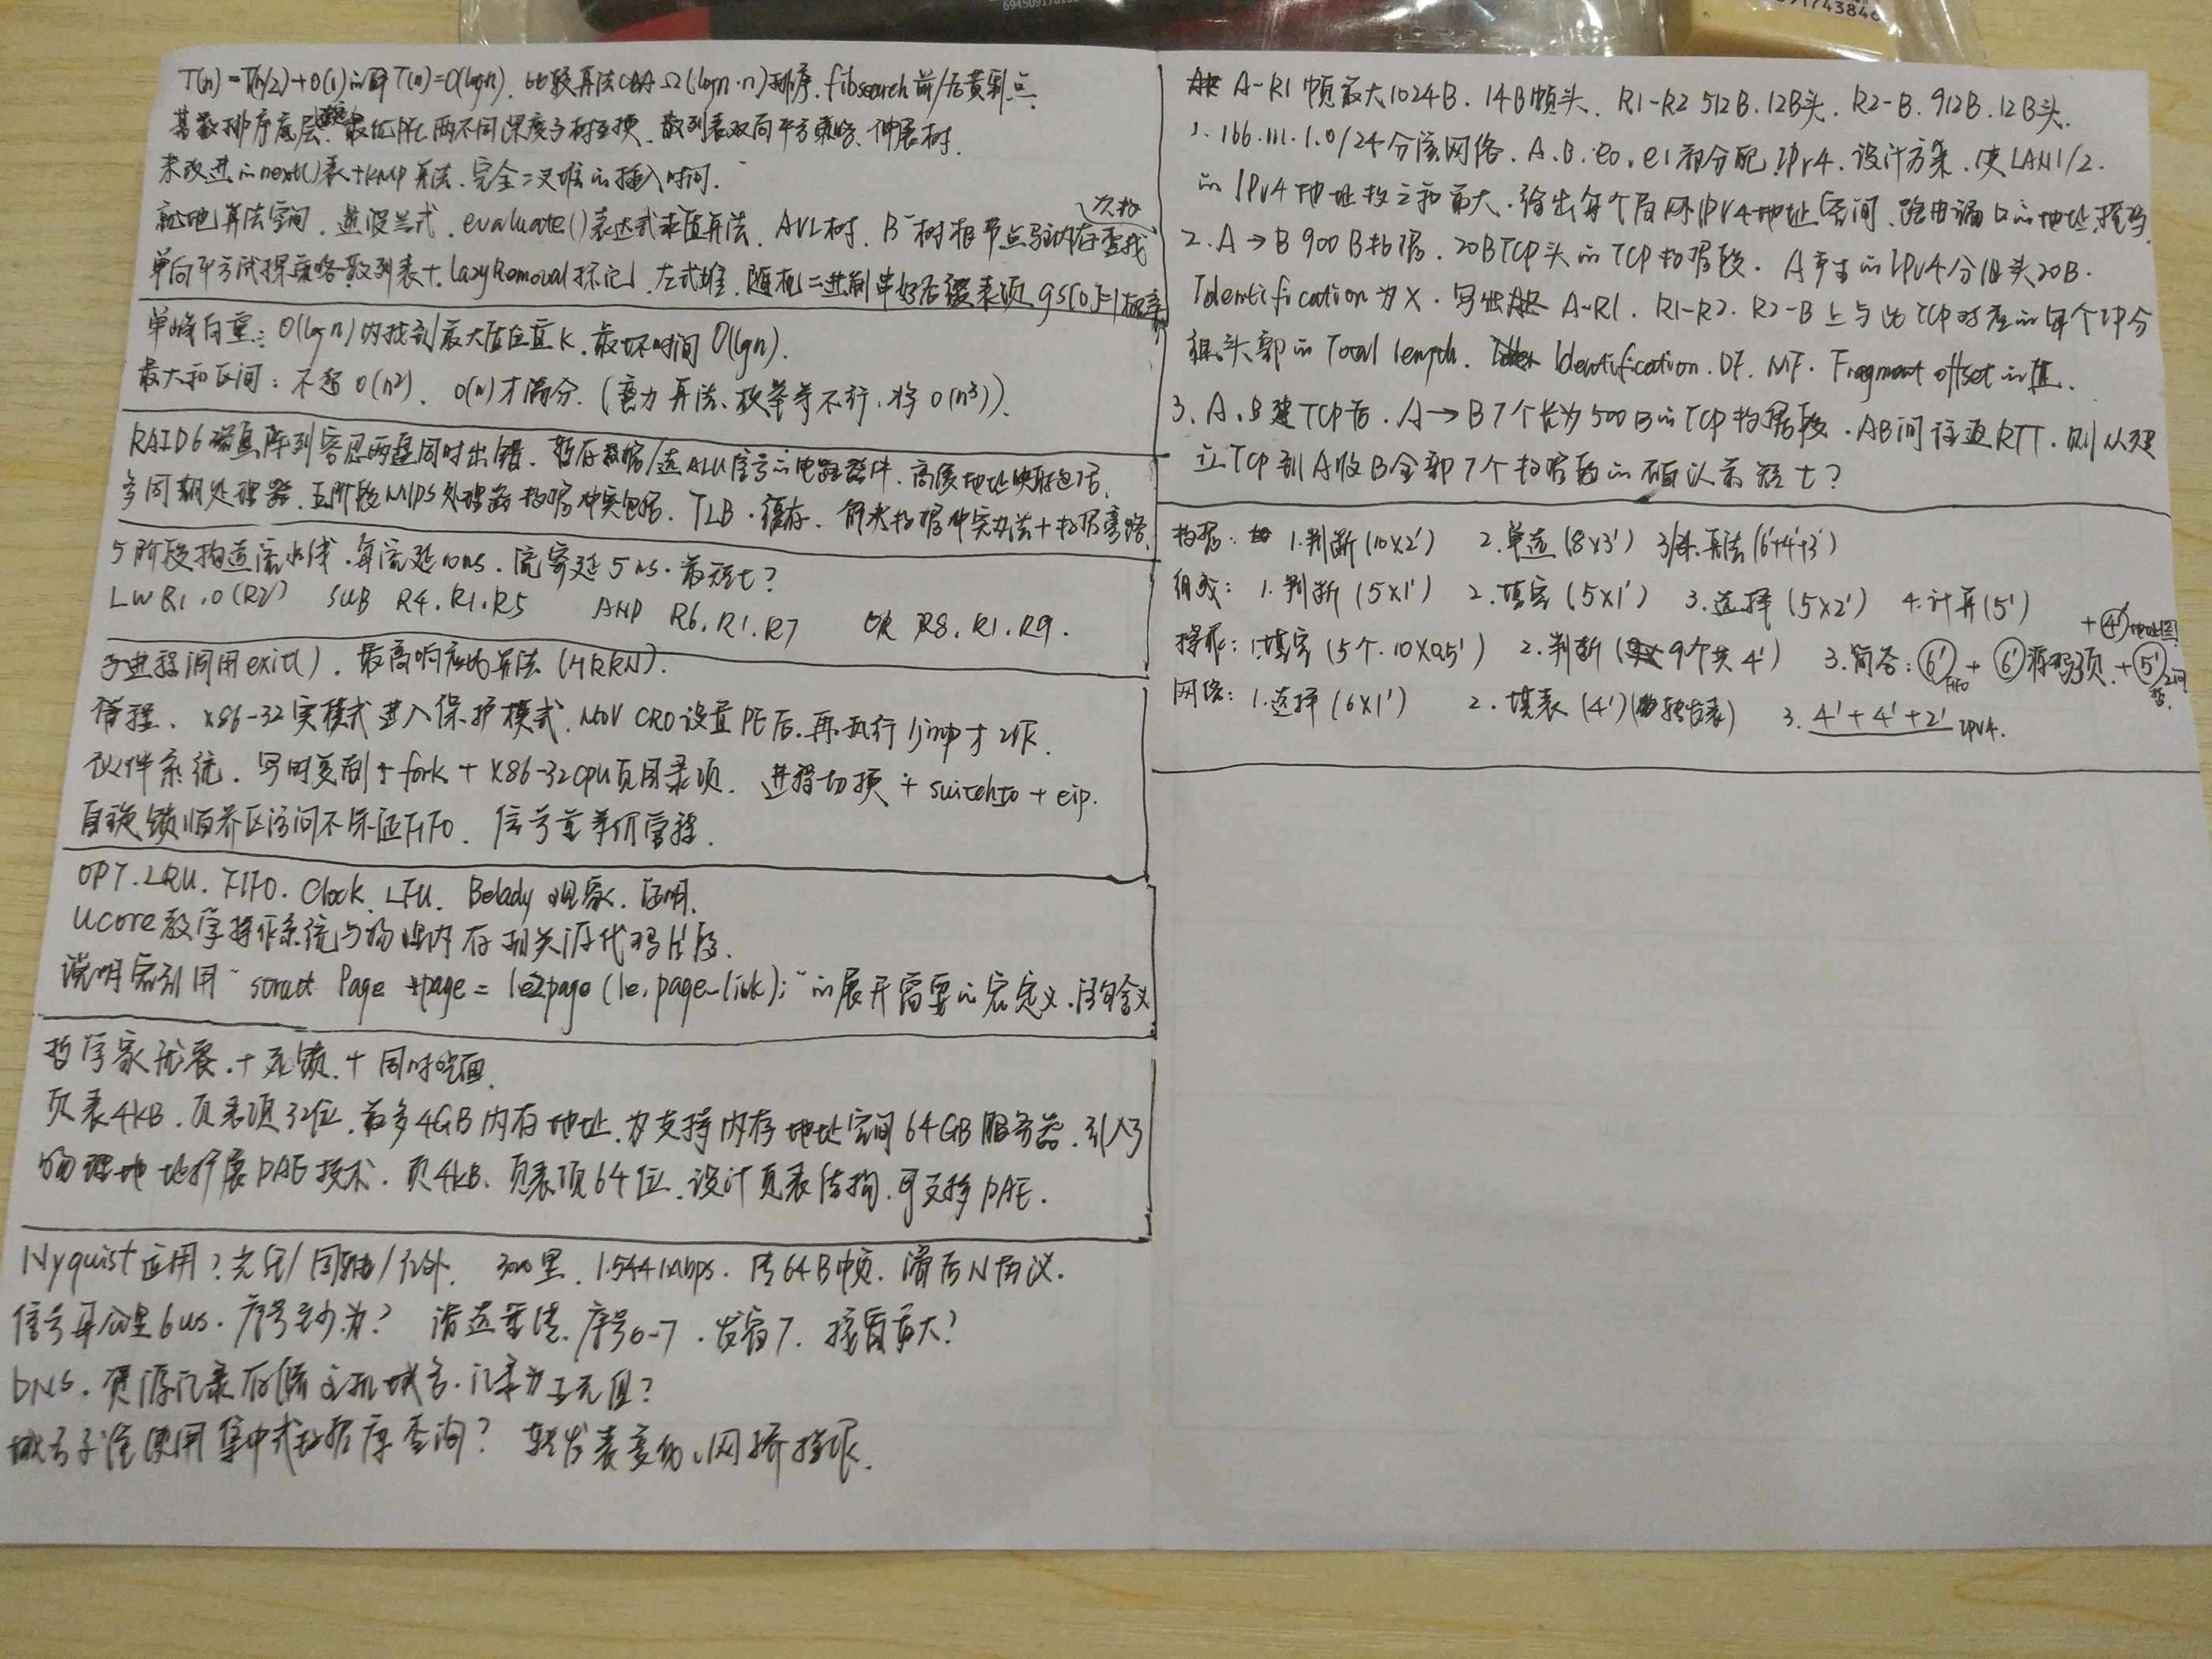 T(n)=T(n/2)+O(1) 即 T(n)=O(logn). 比较算法CBA Ω(logn·n)排序. fibsearch 前/后黄割点.
基数排序底层 最优PFC两不同深度子树互换. 散列表双向平方策略. 伸展树.
未改进的next()表+KMP算法. 完全二叉堆的插入时间.
就地算法空间. 逆波兰式. evaluate()表达式求值算法. AVL树. B-树根节点驻内存查找
次数
单向平方试探策略散列表+lazyRemoval标记. 左式堆. 随机二进制串好后缀表项 gs[0]=1概率
单峰向量: O(lgn)内找到最大值位置K. 最坏时间 O(lgn).
最大和区间: 不超 O(n²). O(n)才满分. (蛮力算法、枚举等不行, 将 O(n³)).
RAID6磁盘阵列容忍两盘同时出错. 暂存数据/选ALU信号的电路器件. 高速地址映射包括.
多周期处理器. 五阶段MIPS处理器数据冲突包括. TLB. 缓存. 解决数据冲突办法+数据旁路.
5阶段构造流水线. 每流延10ns. 流寄延5ns. 最短t?
LW R1, 0(R2) SUB R4, R1, R5 AND R6, R1, R7 OR R8, R1, R9.
子进程调用exit(). 最高响应比算法 (HRRN).
管程. x86-32实模式进入保护模式. MOV CR0设置PE后. 再执行 ljmp才
文件系统. 写时复制+fork+x86-32cpu页目录项. 进程切换+switchto+eip.
自旋锁临界区访问不保证FIFO. 信号量等价管程.
OPT. LRU. FIFO. Clock. LFU. Belady现象. 证明.
Ucore教学操作系统与物理内存相关源代码片段.
说明索引用“struct Page *page = le2page (le, page_link);”的展开需要的宏定义. 语句含义
哲学家就餐. +死锁. +同时吃面.
页表4kB. 页表项32位. 最多4GB内存地址. 为支持内存地址空间64GB服务器. 引入了
物理地址扩展PAE技术. 页4kB. 页表项64位. 设计页表结构. 可支持PAE.
Nyquist适用? 光纤/同轴/红外. 3000里. 1.544Mbps. 传64B帧. 滑后N协议.
信号每公里6us. 序号至少为? 选择重传. 序号0-7. 发窗7. 接窗最大?
DNS. 资源记录存储主机域名. 记录为五元组?
域名子淮使用集中式数据库查询? 转发表变动. 网桥操作.
A-R1帧最大1024B. 14B帧头. R1-R2 512B. 12B头. R2-B. 912B. 12B头.
1. 166.111.1.0/24分该网络. A. B. e0. e1都分配IPv4. 设计方案. 使LAN1/2.
的IPv4地址数之和最大. 给出每个局网IPV4地址空间. 路由端口的地址. 掩码
2. A→B 900B数据. 20BTCP头的TCP数据段. A产生的IPv4分组头20B.
Identification为X. 写出 A-R1. R1-R2. R2-B上与此TCP对应的每个IP分
组头部的Total length. Identification. DF. MF. Fragment offset的值.
3. A、B建TCP后. A→B 7个长为500B的TCP数据段. AB间往返RTT. 则从建
立TCP到A收B全部7个数据段的确认最短t?
数据: 1.判断(10×2') 2.单选(8×3') 3. 算法(6'+4'+3')
组成: 1.判断(5×1') 2.填空(5×1') 3.选择(5×2') 4.计算(5')
操作: 1填空(5个.10×0.5') 2.判断(9个共4') 3.简答: 6' FIFO + 6' 源码页 + 5' 2问
+ 4'
网络: 1.选择(6×1') 2.填表(4')(转发表) 3. 4'+4'+2' IPV4.